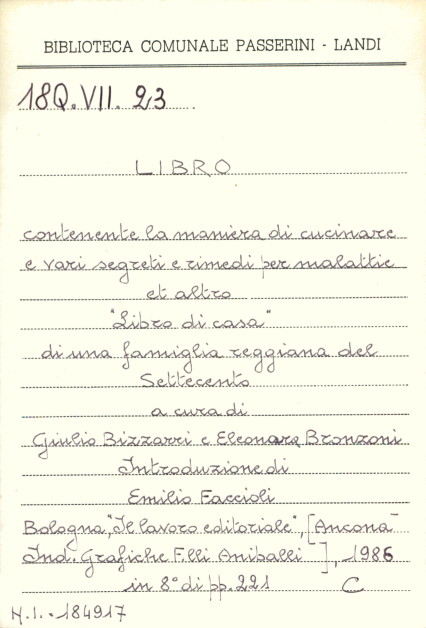 BIBLIOTECA COMUNALE PASSERINI - LANDI
18Q.VII. 23
LIBRO
contenente la maniera di cucinare
e vari segreti e rimedi per malattie
et altro
"Libro di casa"
di una famiglia reggiana del
Settecento
a cura di
Giulio Bizzarri e Eleonora Bronzoni
Introduzione di
Emilio Faccioli
Bologna, "Il lavoro editoriale", [Ancona
Ind. Grafiche F.lli Aniballi ], 1986
in 8° di pp. 221 C
H.I. - 184917